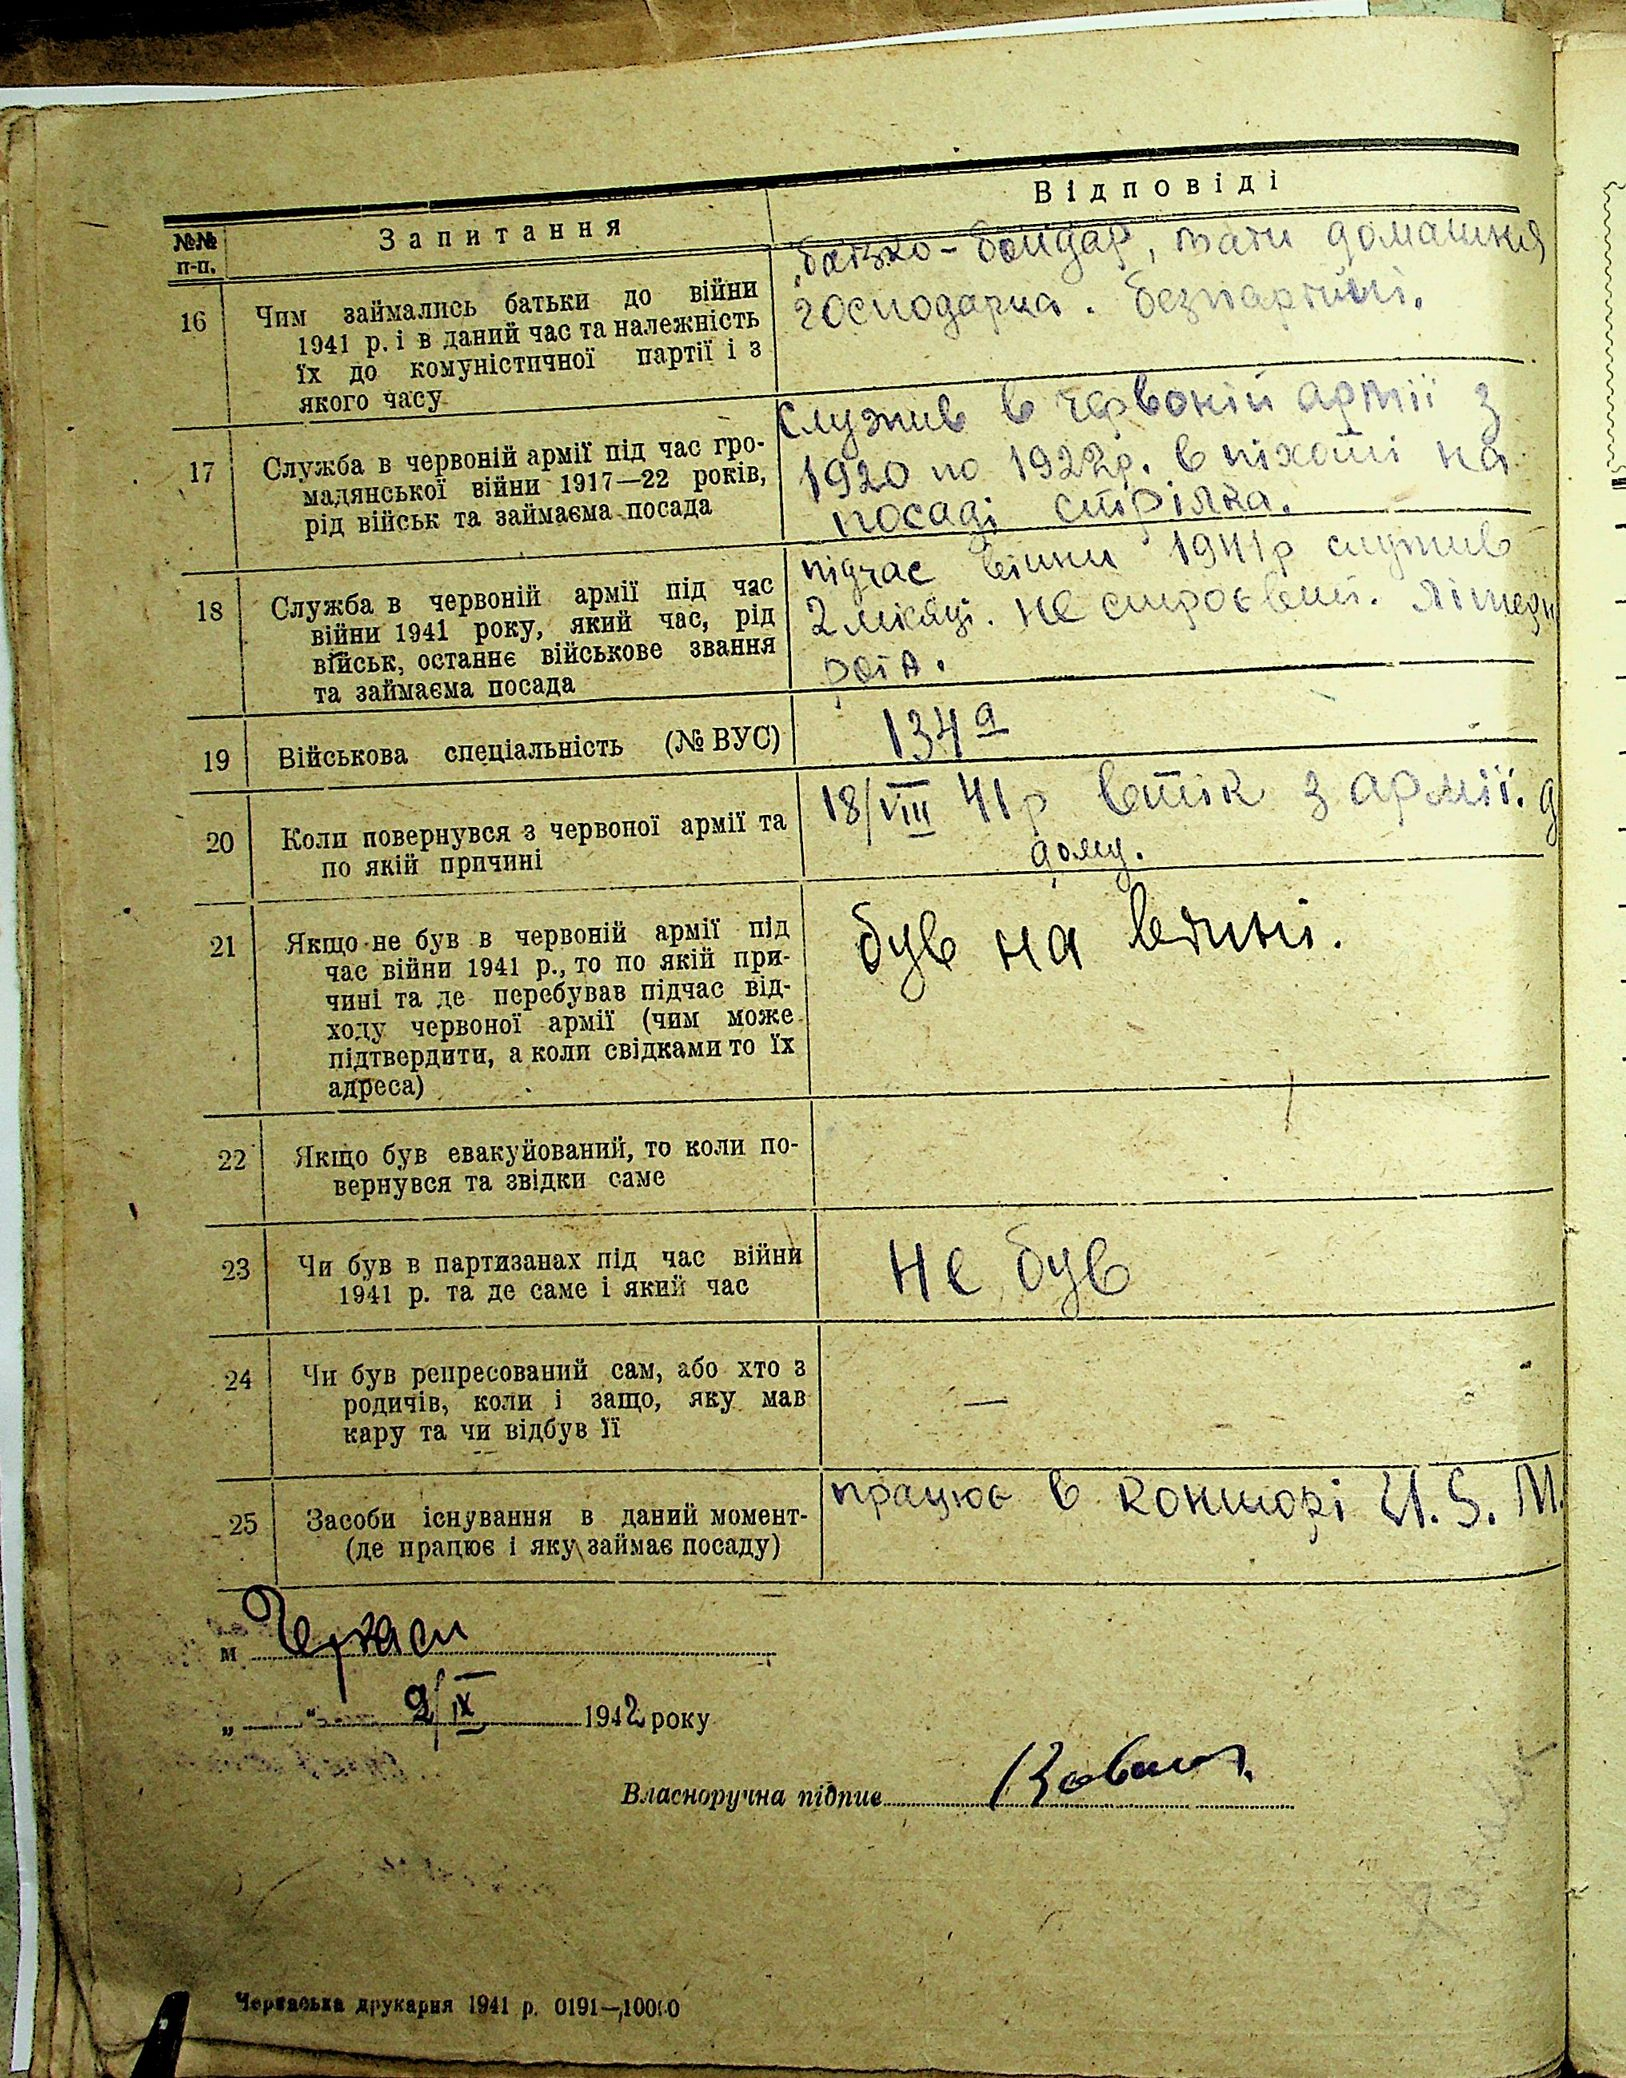 №№ п-п.
Запитання
Відповіді
16
Чим займались батьки до війни
1941 р. і в даний час та належність
їх до комуністичної партії і з
якого часу
батько - бондар, мати домашня
господарка. безпартійні.
17
Служба в червоній армії під час гро-
мадянської війни 1917—22 років,
рід військ та займаєма посада
Служив в Червоній армії з
1920 по 1922р. в піхоті на
посаді стрілка.
18
Служба в червоній армії під час
війни 1941 року, який час, рід
військ, останнє військове звання
та займаєма посада
підчас війни 1941р служив
2 місяці. не строєвий.
19
Військова спеціальність (№ ВУС)
134 а
20
Коли повернувся з червоної армії та
по якій причині
18/VIII 41р втік з армії.
дому.
21
Якщо не був в червоній армії під
час війни 1941 р., то по якій при-
чині та де перебував підчас від-
ходу червоної армії (чим може
підтвердити, а коли свідками то їх
адреса)
був на війні.
22
Якщо був евакуйований, то коли по-
вернувся та звідки саме
23
Чи був в партизанах під час війни
1941 р. та де саме і який час
Не був
24
Чи був репресований сам, або хто з
родичів, коли і защо, яку мав
кару та чи відбув її
—
25
Засоби існування в даний момент-
(де працює і яку займає посаду)
працює в конторі
м Черкаси
„ “ 2/IX 1942 року
Власноручна підпис
Черкаська друкарня 1941 р. 0191—10000